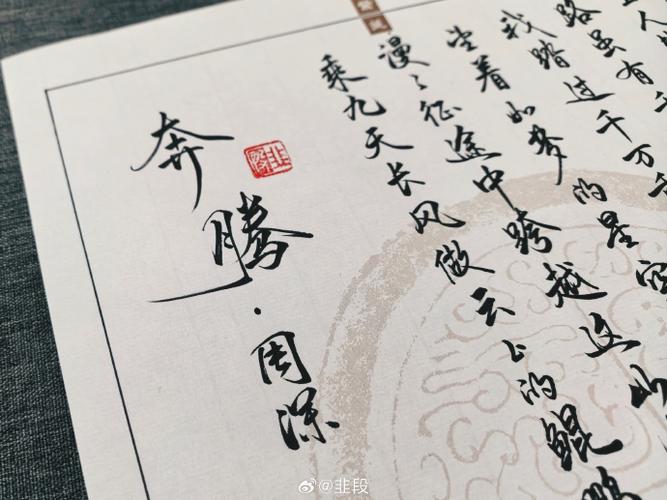 人
路虽有千
我踏过千万千
望着如梦的星空
漫漫征途中跨越这山
乘九天长风做云上的鲲
奔腾·周深
@韭段